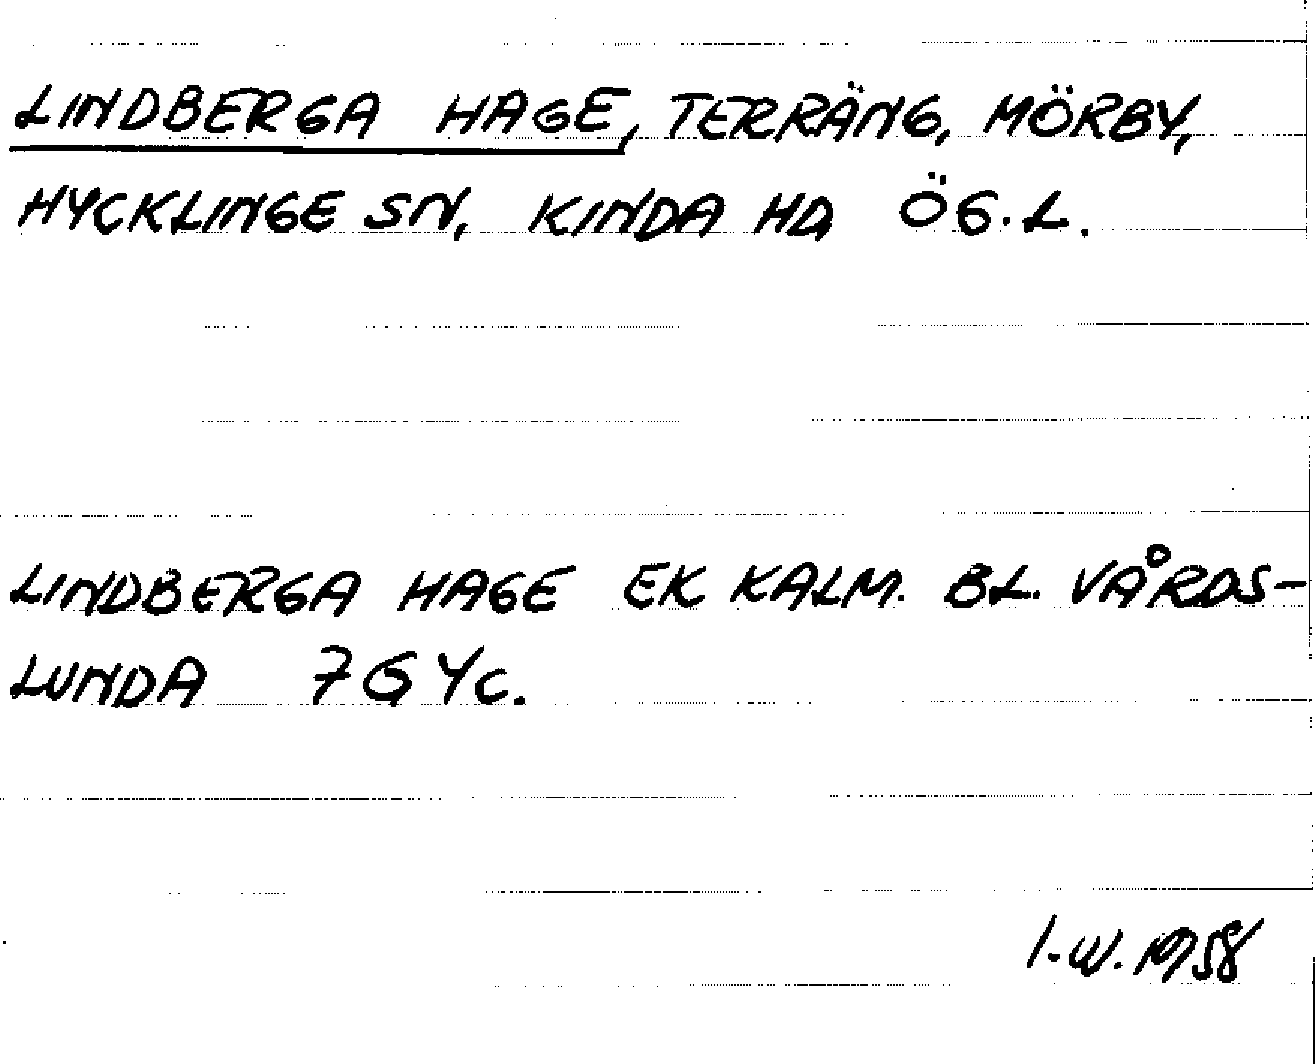 LINDBERGA HAGE, TERRÄNG, MÖRBY,
HYCKLINGE SN, KINDA HD ÖG.L.
LINDBERGA HAGE EK KALM. BL. VÅRDS-
LUNDA 7G Yc.
I.W. 1958